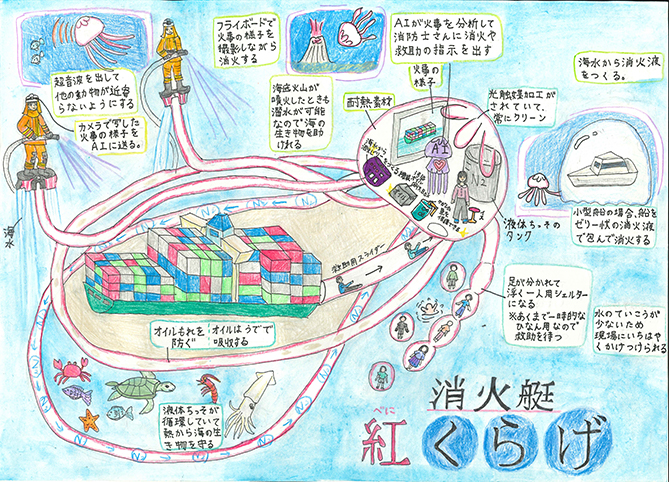 フライボードで
火事の様子を
撮影しながら
消火する
AIが火事を分析して
消防士さんに消火や
救助の指示を出す
海水から消火液
をつくる。
超音波を出して
他の動物が近寄
らないようにする
海底火山が
噴火したときも
潜水が可能
なので海の
生き物を助
けれる
火事の
様子
耐熱素材
光触媒加工が
されていて、
常にクリーン
カメラで写した
火事の様子を
AIに送る。
AI
N2
海水
液体ちっその
タンク
小型船の場合、船を
ゼリー状の消火液
で包んで消火する
救助用スライダー
足が分かれて
浮く一人用シェルター
になる
※あくまで一時的な
ひなん用なので
救助を待つ
水のていこうが
少ないため
現場にいちはや
くかけつけられる
オイルもれを
防ぐ
オイルはうでで
吸収する
液体ちっそが
循環していて
熱から海の生
き物を守る
消火艇
べに
紅くらげ